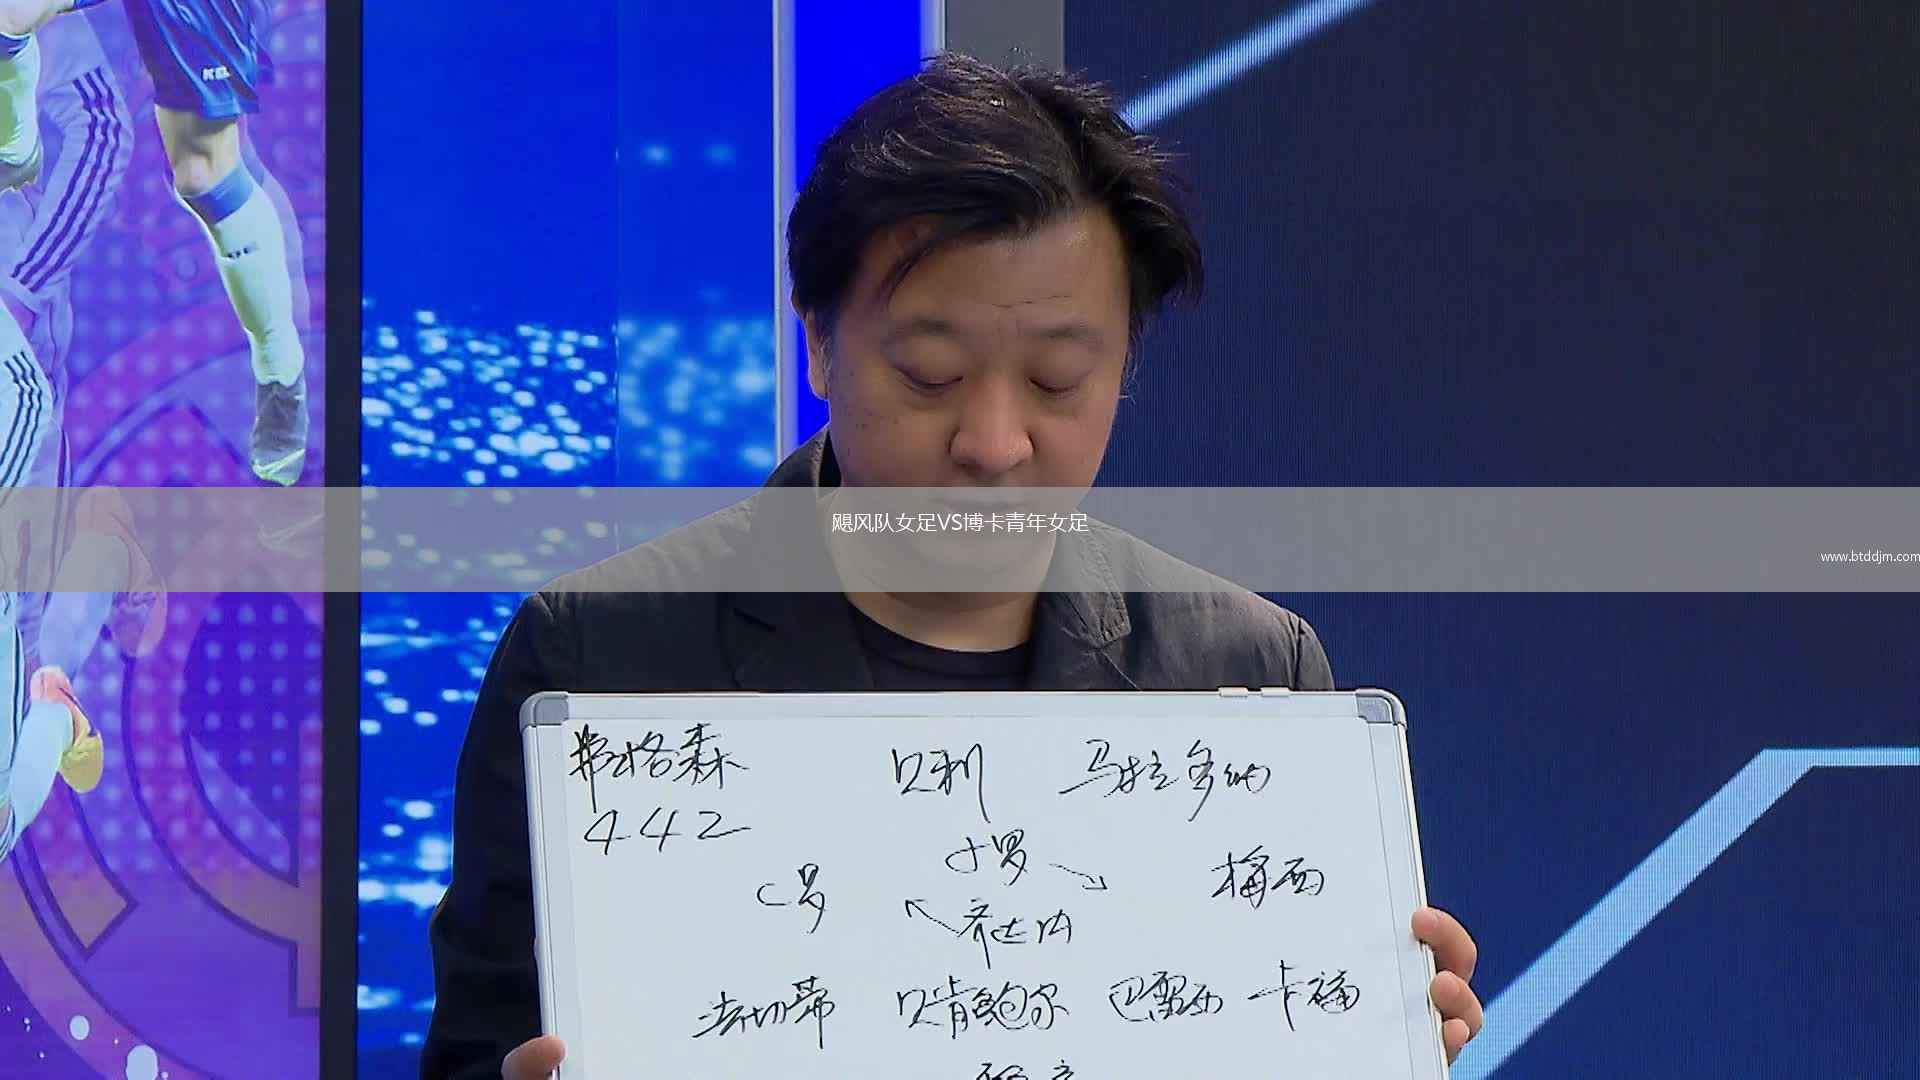 KEL
飓风队女足VS博卡青年女足
www.btddjm.com
弗格森 贝利 马拉多纳
442
小罗
C罗 梅西
齐达内
法切蒂 贝肯鲍尔 巴雷西 卡福